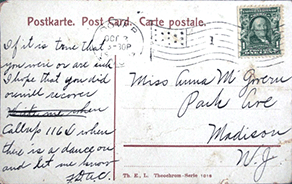 Postkarte. Post Card. Carte postale.
OCT
-30P
1
If it is true that
you were or are sick
I hope that you did
or will recover
when
Call up 116 L when
there is a dance on
and let me know
Miss Anna M Govern
Park Ave
Madison
N.J.
Th. E. L. Theochrom-Serie 1219